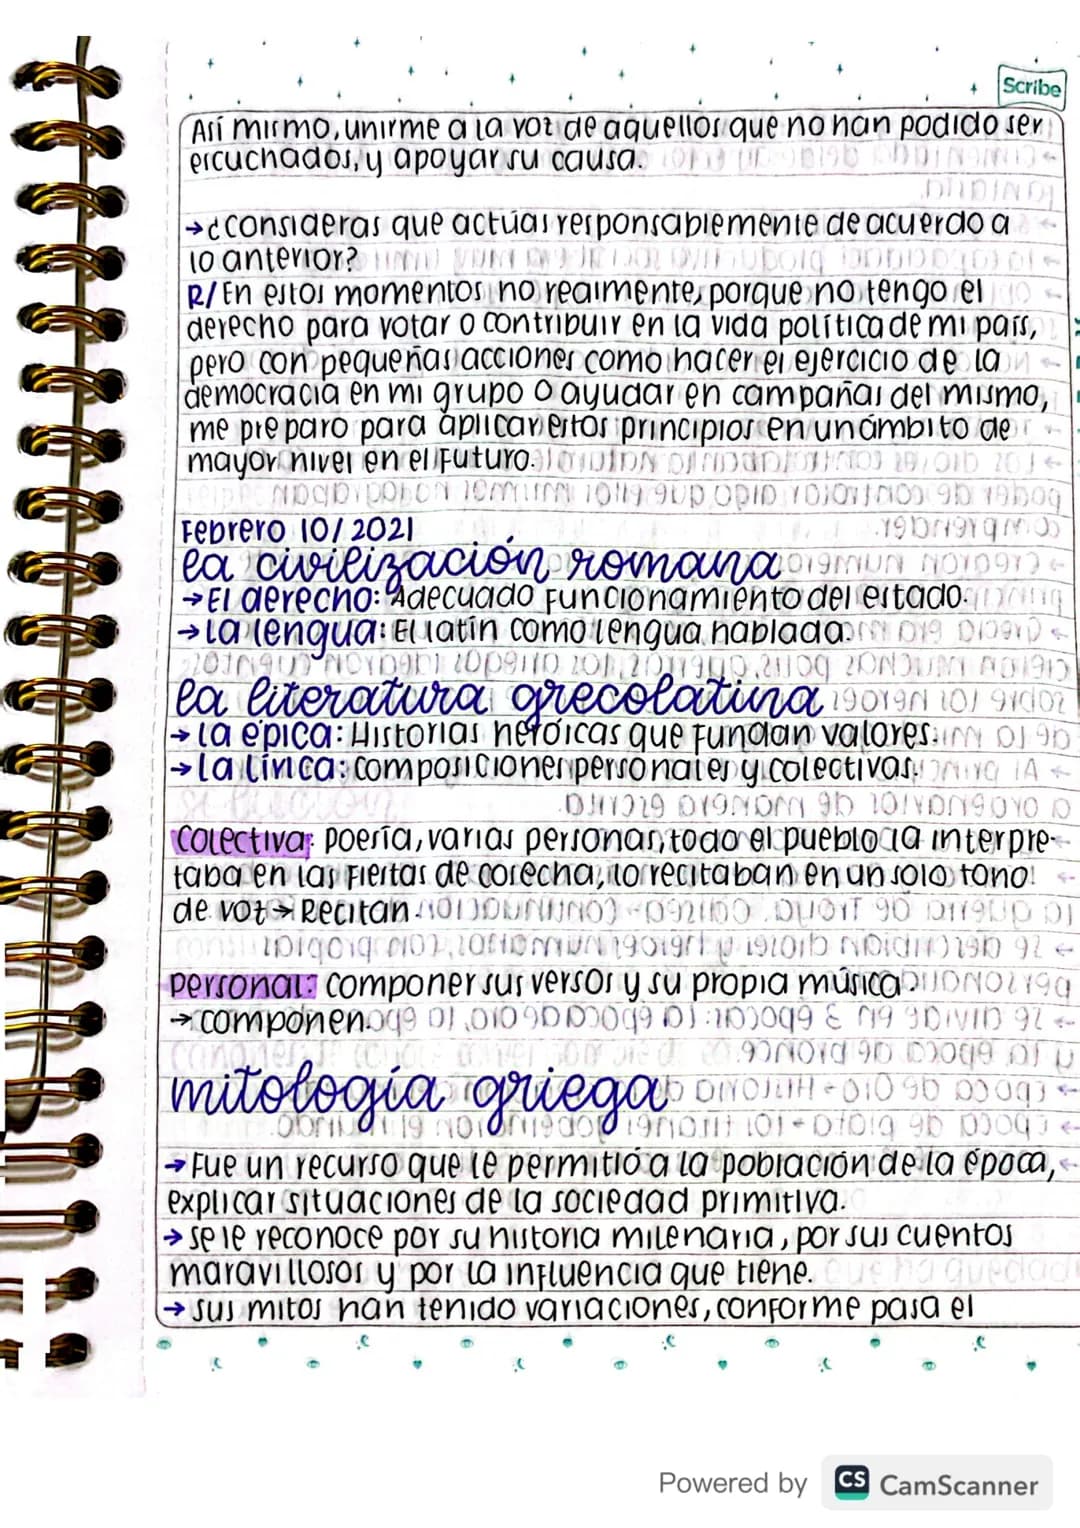 Scribe
Así mismo, unirme a la voz de aquellos que no han podido ser
escuchados, y apoyar su causa.
→¿Consideras que actúas responsablemente de acuerdo a
lo anterior?
R/ En estos momentos no realmente, porque no tengo el
derecho para votar o contribuir en la vida política de mi país,
pero con pequeñas acciones como hacer el ejercicio de la
democracia en mi grupo o ayudar en campañas del mismo,
me preparo para aplicar estos principios en un ámbito de
mayor nivel en el futuro.
Febrero 10/2021
La civilización romana
→El derecho: Adecuado funcionamiento del estado.
→La lengua: El latín como lengua hablada.
La literatura grecolatina
→La épica: Historias heroicas que fundan valores.
→La lírica: composiciones personales y colectivas.
Colectiva: poesía, varias personas, todo el pueblo la interpre-
taba en las fiestas de cosecha, lo recitaban en un solo tono
de voz → Recitan.
personal: componer sus versos y su propia música.
→componen.
mitología griega
→Fue un recurso que le permitió a la población de la época,
explicar situaciones de la sociedad primitiva.
→se le reconoce por su historia milenaria, por sus cuentos
maravillosos y por la influencia que tiene.
→sus mitos han tenido variaciones, conforme pasa el
Powered by CS CamScanner